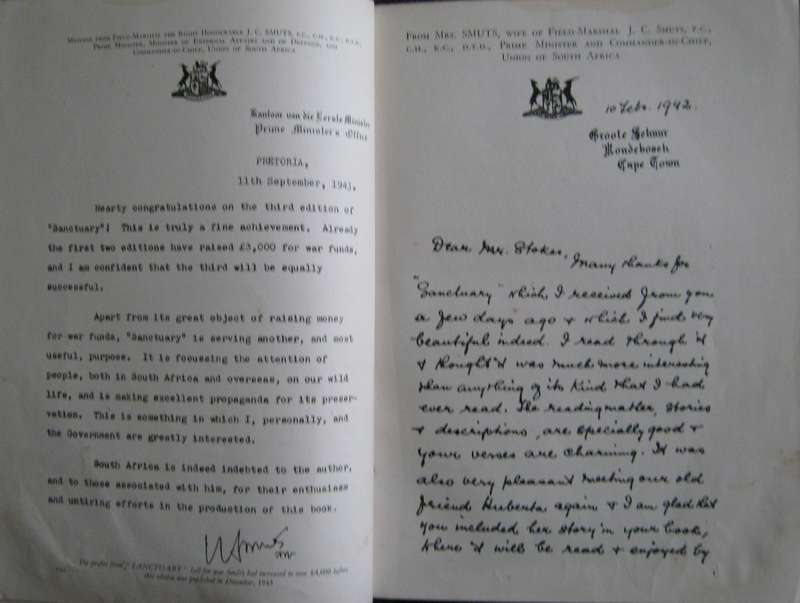 MESSAGE FROM FIELD-MARSHAL THE RIGHT HONOURABLE J. C. SMUTS, P.C., C.H., K.C., D.T.D.,
PRIME MINISTER, MINISTER OF EXTERNAL AFFAIRS AND OF DEFENCE, AND
COMMANDER-IN-CHIEF, UNION OF SOUTH AFRICA
Kantoor van die Eerste Minister
Prime Minister's Office
PRETORIA,
11th September, 1943.
Hearty congratulations on the third edition of
"Sanctuary"! This is truly a fine achievement. Already
the first two editions have raised £3,000 for war funds,
and I am confident that the third will be equally
successful.
Apart from its great object of raising money
for war funds, "Sanctuary" is serving another, and most
useful, purpose. It is focussing the attention of
people, both in South Africa and overseas, on our wild
life, and is making excellent propaganda for its preser-
vation. This is something in which I, personally, and
the Government are greatly interested.
South Africa is indeed indebted to the author,
and to those associated with him, for their enthusiasm
and untiring efforts in the production of this book.
The profits from "SANCTUARY" (all for war funds) had increased to over £4,000 before
this edition was published in December, 1943
FROM MRS. SMUTS, WIFE OF FIELD-MARSHAL J. C. SMUTS, P.C.,
C.H., K.C., D.T.D., PRIME MINISTER AND COMMANDER-IN-CHIEF,
UNION OF SOUTH AFRICA
10 Febr. 1942.
Groote Schuur
Rondebosch
Cape Town
Dear Mr. Stokes,
Many thanks for
"Sanctuary" which I received from you
a few days ago & which I find very
beautiful indeed. I read through it
& thought it was much more interesting
than anything of its kind that I had
ever read. The reading matter, stories
& descriptions, are specially good &
your verses are charming. It was
also very pleasant meeting our old
friend Huberta again & I am glad that
you included her story in your book,
where it will be read & enjoyed by